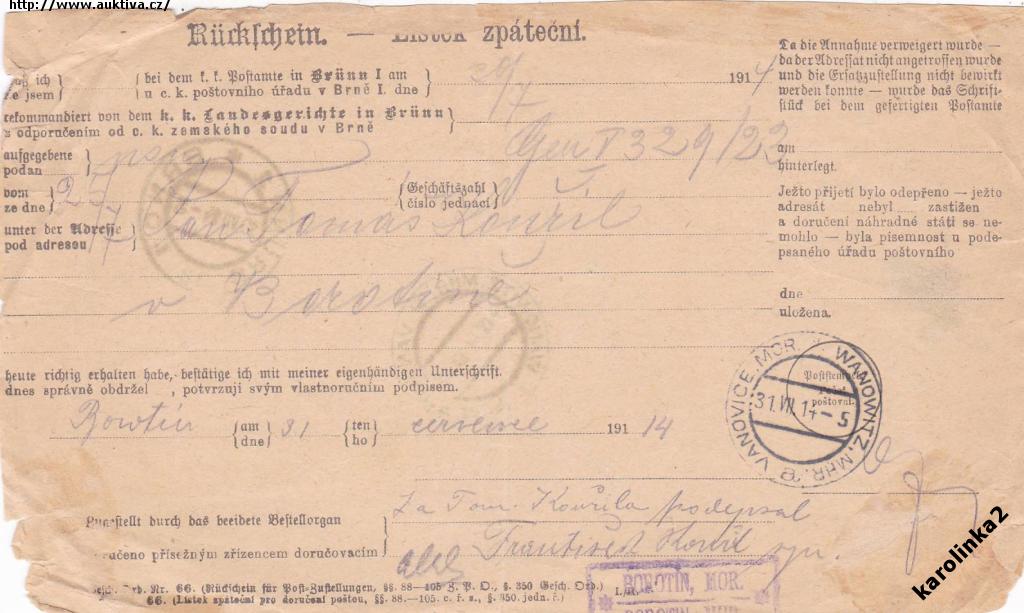 http://www.auktiva.cz/
Rückschein. — Lístek zpáteční.
bei dem k. k. Postamte in Brünn I am
ich
že jsem
u c. k. poštovního úřadu v Brně I. dne
29/7
191 4
rekommandiert von dem k. k. Landesgerichte in Brünn
s odporučením od c. k. zemského soudu v Brně
aufgegebene
podan
Geschäftszahl
číslo jednací
329/23
vom
ze dne
25/7
unter der Adresse
pod adresou
Pan Tomáš Kouřil
v Borotíně
heute richtig erhalten habe, bestätige ich mit meiner eigenhändigen Unterschrift.
dnes správně obdržel , potvrzuji svým vlastnoručním podpisem.
Borotín
am
dne
31
ten
ho
července
191 14
Za Tom. Kouřila podepsal
František Kouřil
Zugestellt durch das beeidete Bestellorgan
Doručeno přísežným zřízencem doručovacím
Gesch. Orb. Nr. 66. (Rückschein für Post-Zustellungen, §§. 88—105 Z. P. O., §. 350 Gesch. Ord.)
66. (Lístek zpáteční pro doručení poštou, §§. 88—105. c. ř. s., §. 350. jedn. ř.)
Da die Annahme verweigert wurde —
da der Adressat nicht angetroffen wurde
und die Ersatzzustellung nicht bewirkt
werden konnte — wurde das Schrift-
stück bei dem gefertigten Postamte
am
hinterlegt.
Ježto přijetí bylo odepřeno — ježto
adresát nebyl zastižen
a doručení náhradné státi se ne-
mohlo — byla písemnost u pode-
psaného úřadu poštovního
dne
uložena.
Poststempel
poštovní.
WANOWITZ, MHR.
VANOVICE, MOR.
31.VII.14-5
BOROTÍN, MOR.
karolinka2